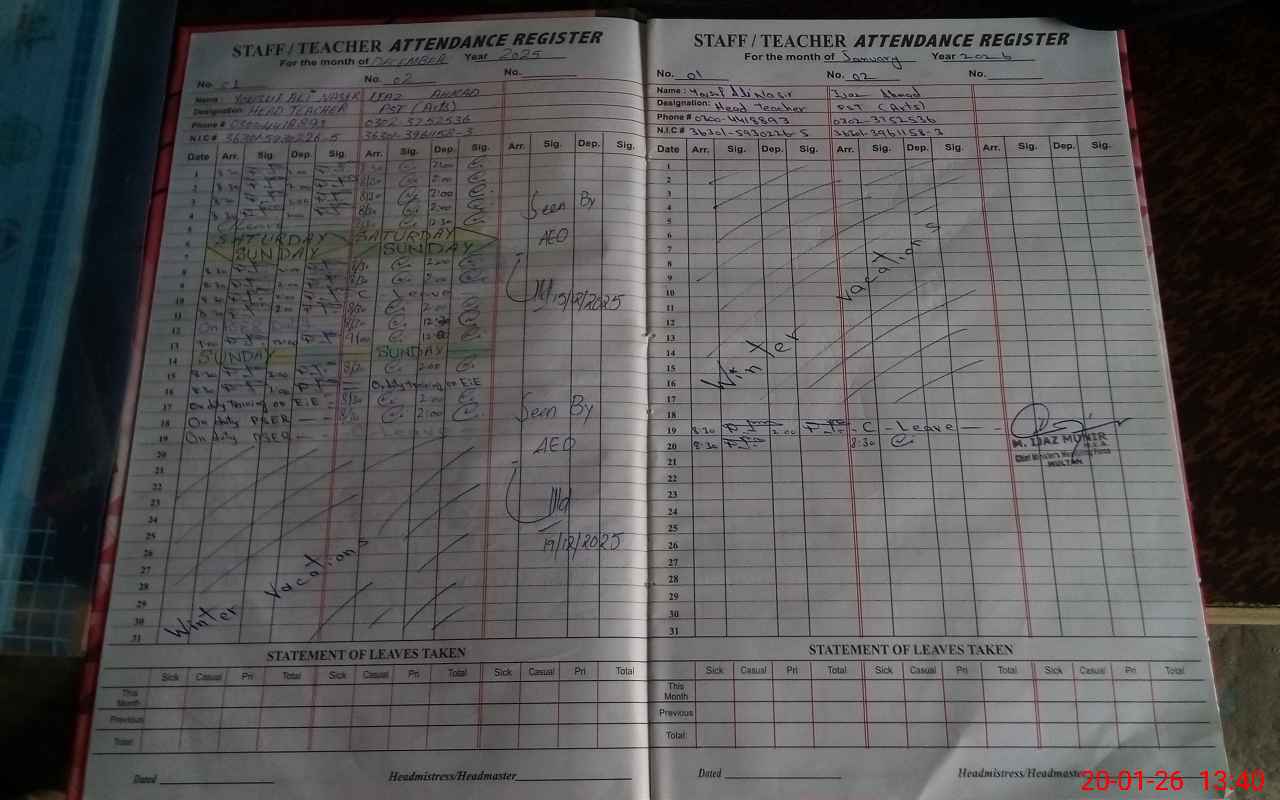 STAFF / TEACHER ATTENDANCE REGISTER
For the month of DECEMBER Year 2025
No. 01 No. 02 No.
Name : YOUSUF ALI NASIR IJAZ AHMAD
Designation: HEAD TEACHER PST (Arts)
Phone # 0300-4418893 0302-3752536
N.I.C # 36301-5930226-5 36301-3961158-3
Date Arr. Sig. Dep. Sig. Arr. Sig. Dep. Sig. Arr. Sig. Dep. Sig.
1 8:30 2:00 8:30 2:00
2 8:30 2:00 8:30 2:00
3 8:30 2:00 8/30 2:00
4 8:30 8/30 2:00
5 Leave 8/30 12:30
6 SATURDAY SATURDAY
7 SUNDAY SUNDAY
8 8:30 2:00 8/30 2:00
9 8:30 2:00 8/30 2:00
10 8:30 2:00 C Leave
11 8:30 8/30 2:00
12 On 8/30 12:30
13 9:00
14 SUNDAY SUNDAY
15 8:30 2:00 8/30 2:00
16 8:30 2:00 On duty Training on E.i.E
17 On duty Training on E.i.E 8/30 2:00
18 On duty PSER — - 8/30 2:00
19 On duty PSER — -
20
21
22
23
24
25
26
27
28
29
30
31
Winter Vacations
Seen By
AEO
15/12/2025
Seen By
AEO
19/12/2025
STATEMENT OF LEAVES TAKEN
Sick Casual Pri Total Sick Casual Pri Total Sick Casual Pri Total
This Month
Previous
Total:
Dated Headmistress/Headmaster
STAFF / TEACHER ATTENDANCE REGISTER
For the month of January Year 2026
No. 01 No. 02 No.
Name : Yousuf Ali Nasir Ijaz Ahmad
Designation: Head Teacher PST (Arts)
Phone # 0300-4418893 0302-3752536
N.I.C # 36301-5930226-5 36301-3961158-3
Date Arr. Sig. Dep. Sig. Arr. Sig. Dep. Sig. Arr. Sig. Dep. Sig.
1
2
3
4
5
6
7
8
9
10
11
12
13
14
15
16
17
18
19 8:30 2:00 - C - Leave — -
20 8:30 8:30
21
22
23
24
25
26
27
28
29
30
31
Winter Vacations
M. IJAZ MUNIR
MULTAN
STATEMENT OF LEAVES TAKEN
Sick Casual Pri Total Sick Casual Pri Total Sick Casual Pri Total
This Month
Previous
Total:
Dated Headmistress/Headmaster
20-01-26 13:40